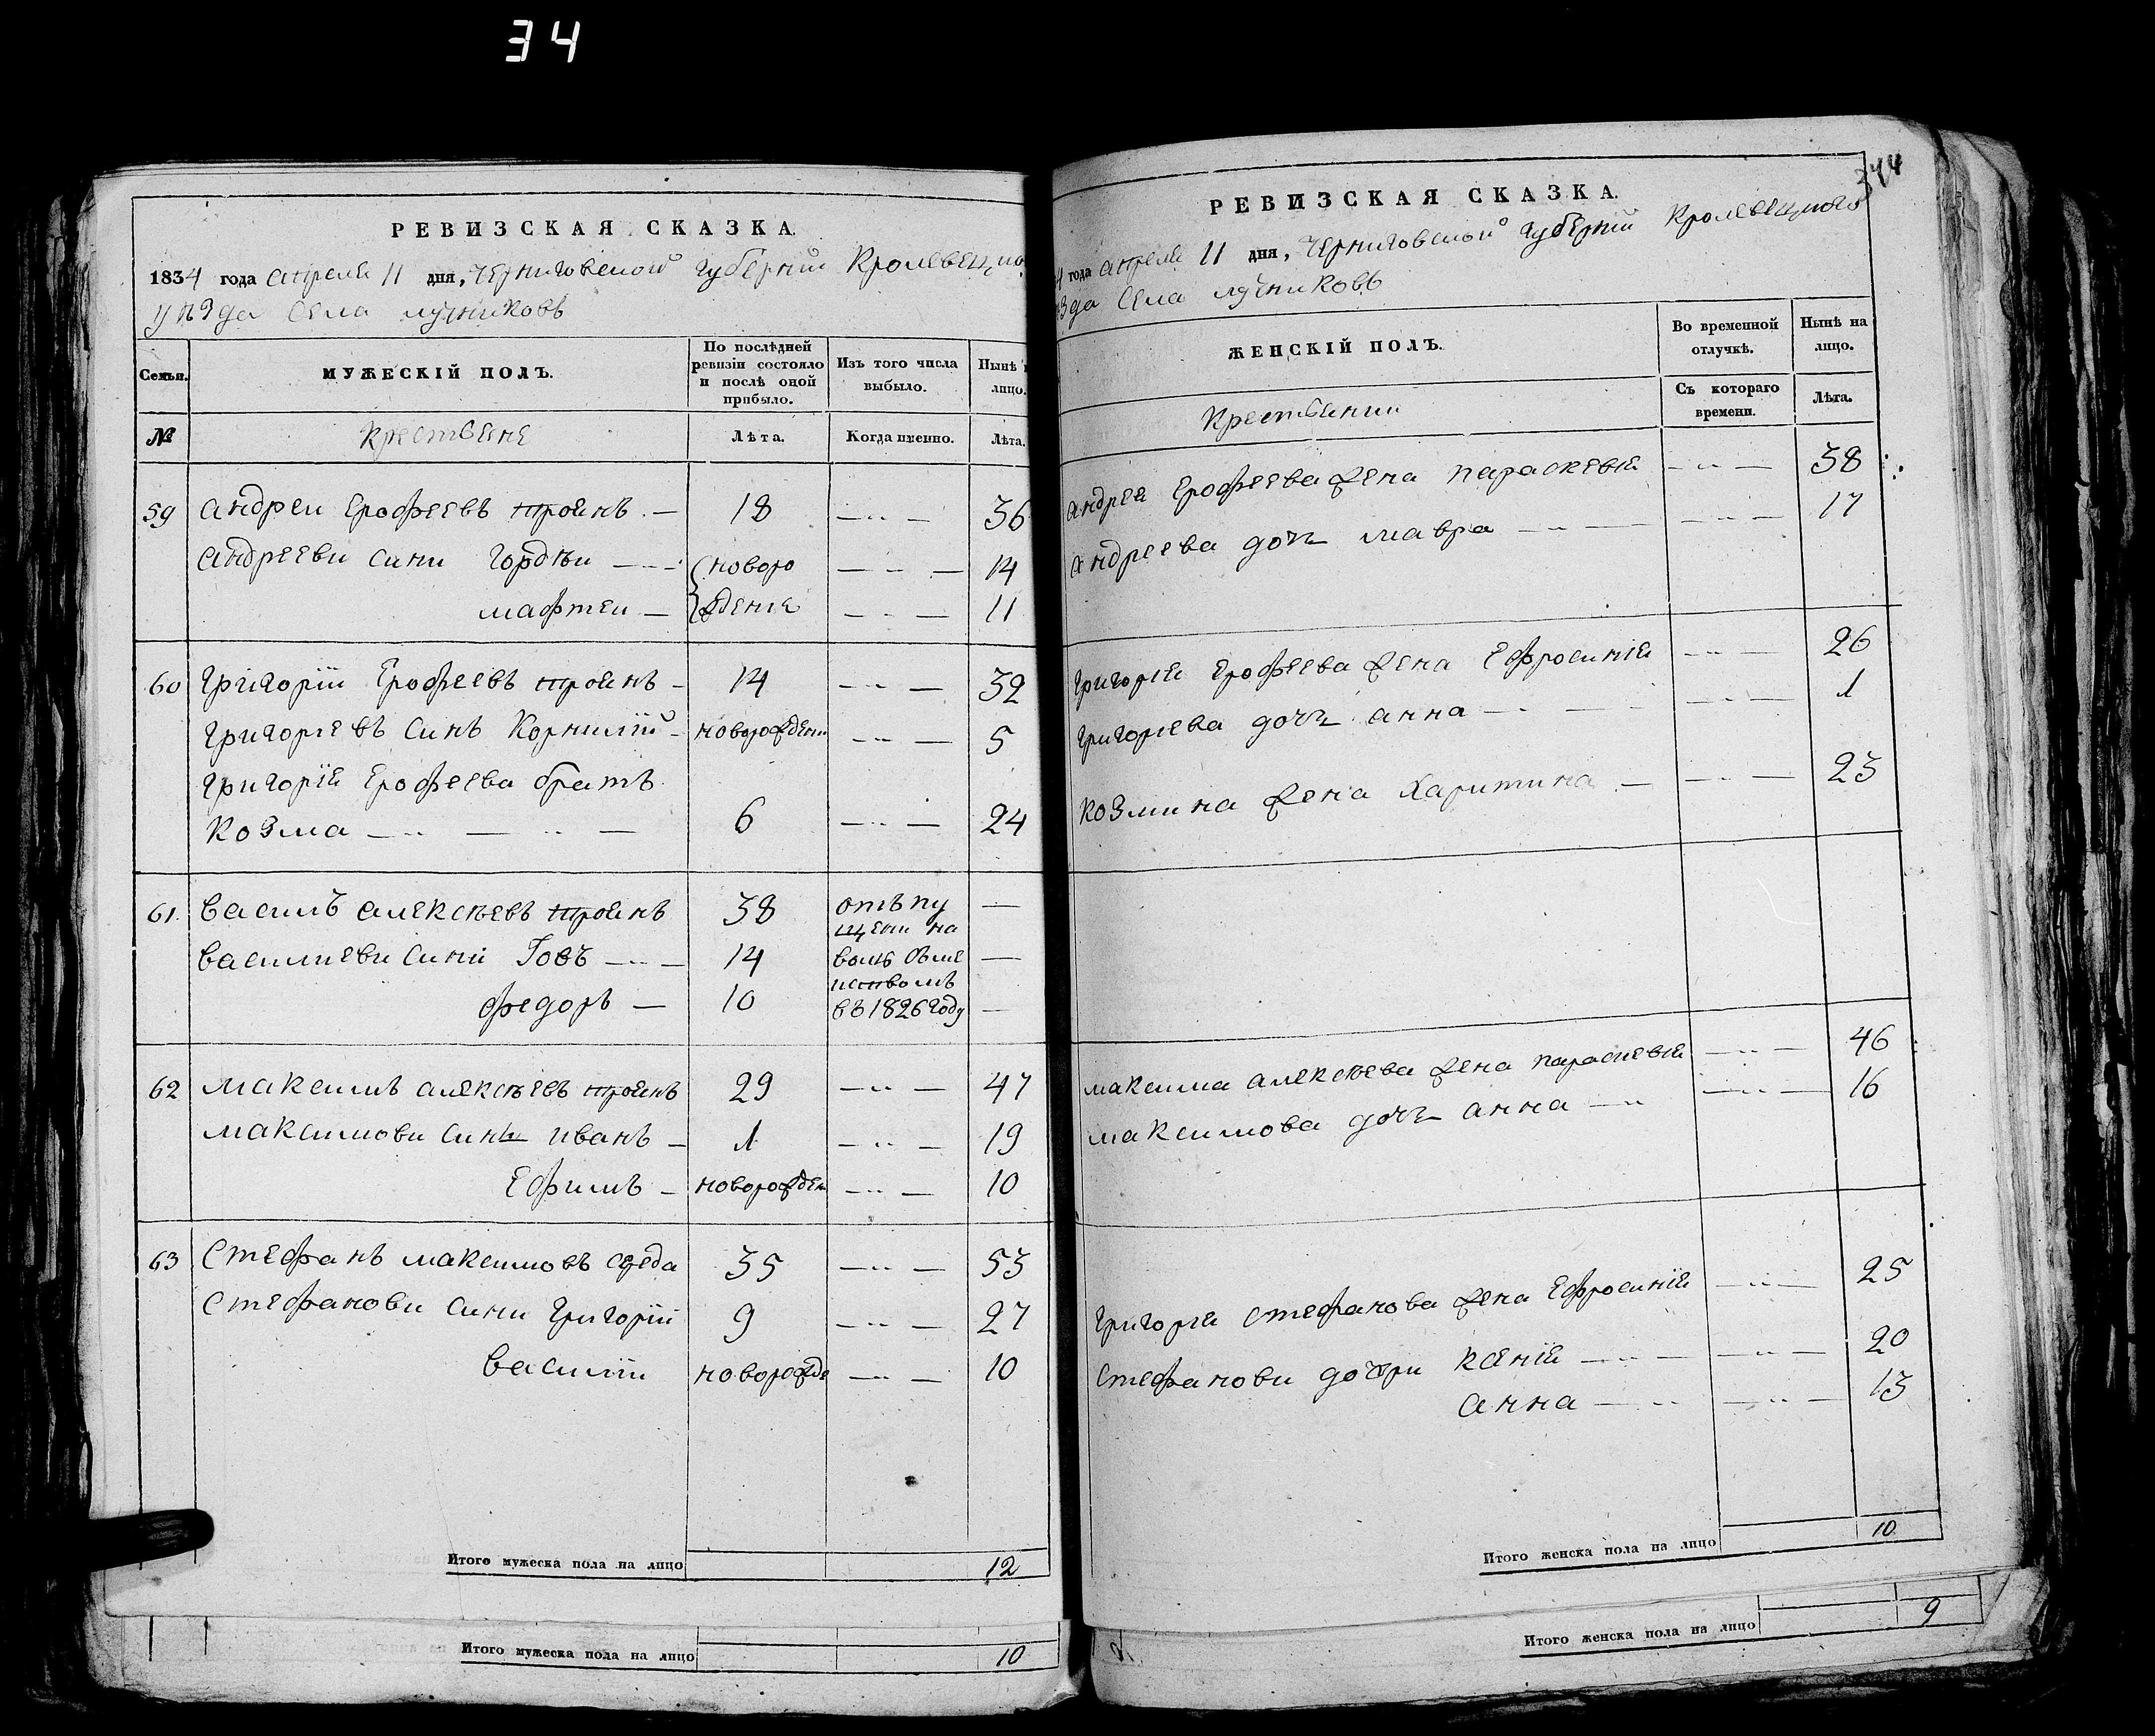 34
РЕВИЗСКАЯ СКАЗКА.
1834 года апреля 11 дня, Черниговской губерніи Кролевецко
уѣзда села лучниковъ
Семьи. МУЖЕСКІЙ ПОЛЪ. По послѣдней ревизіи состояло и послѣ оной прибыло. Изъ того числа выбыло. Нынѣ лицо.
№ Крестьяне Лѣта. Когда именно. Лѣта.
59 Андреи Ерофеевъ 18 36
Андрееви сини Гордѣи новоро 14
мафтеи жденіе 11
60 Григоріи Ерофеевъ 14 32
Григорьевъ синъ Корнилій новорожден 5
Григорія Ерофеева братъ
Козма 6 24
61. Василъ Алексѣевъ 38 отъпу
щени на
Василиеви сини Іовъ 14 волю
федоръ 10 въ 1826 году
62 максимъ алексѣевъ 29 47
максимови сини иванъ 1 19
Ефимъ новорожден 10
63 Стефанъ максимовъ 35 53
Стефанови сини Григоріи 9 27
Василіи новорожде 10
Итого мужеска пола на лицо 12
Итого мужеска пола на лицо 10
344
РЕВИЗСКАЯ СКАЗКА.
4 года апреля 11 дня, Черниговской губерніи Кролевецкого
зда села лучниковъ
ЖЕНСКІЙ ПОЛЪ. Во временной отлучкѣ. Нынѣ на лицо.
Крестьянки Съ котораго времени. Лѣта.
Андрея Ерофеева жена параскевія 38
Андреева дочъ мавра 17
Григорія Ерофеева жена Ефросинія 26
Григорьева дочъ анна 1
Козмина жена Харитина 23
максима алексѣева жена параскевія 46
максимова дочъ анна 16
Григорія Стефанова жена Ефросинія 25
Стефанови дочери Ксенія 20
анна 13
Итого женска пола на лицо 10
Итого женска пола на лицо 9